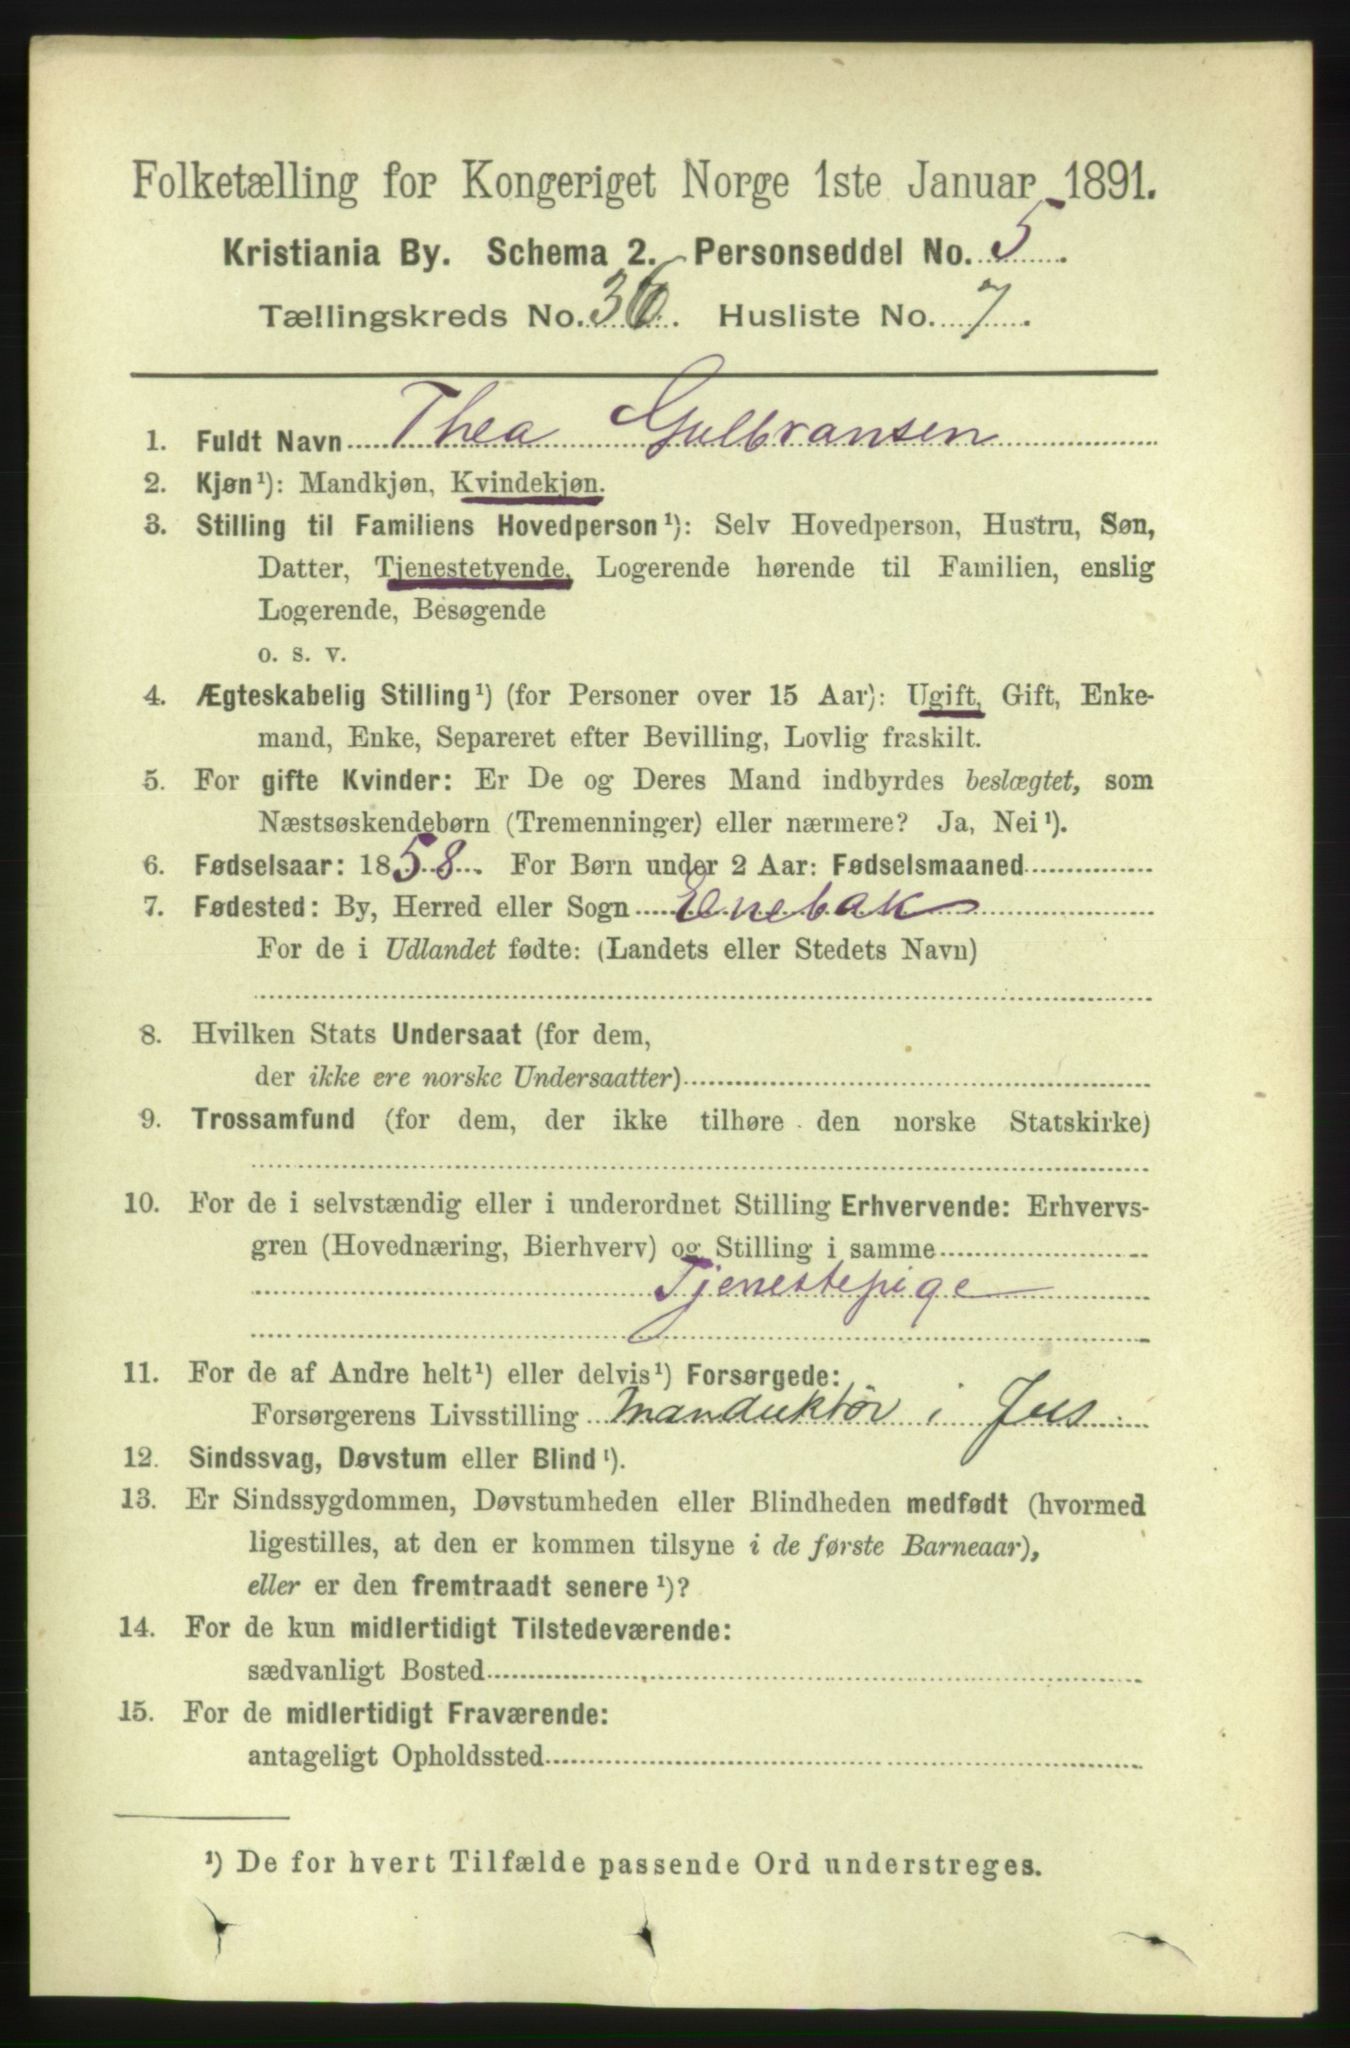 Folketælling for Kongeriget Norge 1ste Januar 1891.
Kristiania By. Schema 2. Personseddel No. 5.
Tællingskreds No. 36. Husliste No. 7.
1. Fuldt Navn Thea Gulbransen
2. Kjøn¹): Mandkjøn, Kvindekjøn.
3. Stilling til Familiens Hovedperson¹): Selv Hovedperson, Hustru, Søn,
Datter, Tjenestetyende, Logerende hørende til Familien, enslig
Logerende, Besøgende
o. s. v.
4. Ægteskabelig Stilling¹) (for Personer over 15 Aar): Ugift, Gift, Enke-
mand, Enke, Separeret efter Bevilling, Lovlig fraskilt.
5. For gifte Kvinder: Er De og Deres Mand indbyrdes beslægtet, som
Næstsøskendebørn (Tremenninger) eller nærmere? Ja, Nei¹).
6. Fødselsaar: 1858. For Børn under 2 Aar: Fødselsmaaned
7. Fødested: By, Herred eller Sogn Enebak
For de i Udlandet fødte: (Landets eller Stedets Navn)
8. Hvilken Stats Undersaat (for dem,
der ikke ere norske Undersaatter)
9. Trossamfund (for dem, der ikke tilhøre den norske Statskirke)
10. For de i selvstændig eller i underordnet Stilling Erhvervende: Erhvervs-
gren (Hovednæring, Bierhverv) og Stilling i samme
Tjenestepige
11. For de af Andre helt¹) eller delvis¹) Forsørgede:
Forsørgerens Livsstilling Manduktör i Jus
12. Sindssvag, Døvstum eller Blind¹).
13. Er Sindssygdommen, Døvstumheden eller Blindheden medfødt (hvormed
ligestilles, at den er kommen tilsyne i de første Barneaar),
eller er den fremtraadt senere¹)?
14. For de kun midlertidigt Tilstedeværende:
sædvanligt Bosted
15. For de midlertidigt Fraværende:
antageligt Opholdssted
¹) De for hvert Tilfælde passende Ord understreges.